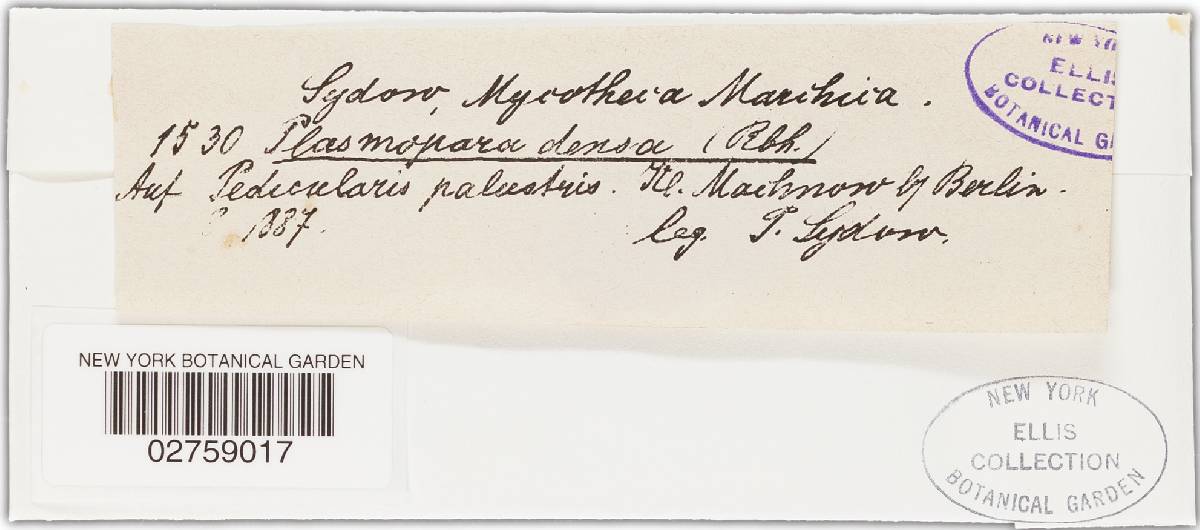 Sydow, Mycotheca Marchica.
1530 Plasmopara densa (Rbh.)
Auf Pedicularis palustris. Kl. Machnow b/ Berlin.
1887.
leg. P. Sydow.
NEW YORK
ELLIS
COLLECT
BOTANICAL GA
NEW YORK BOTANICAL GARDEN
02759017
NEW YORK
ELLIS
COLLECTION
BOTANICAL GARDEN